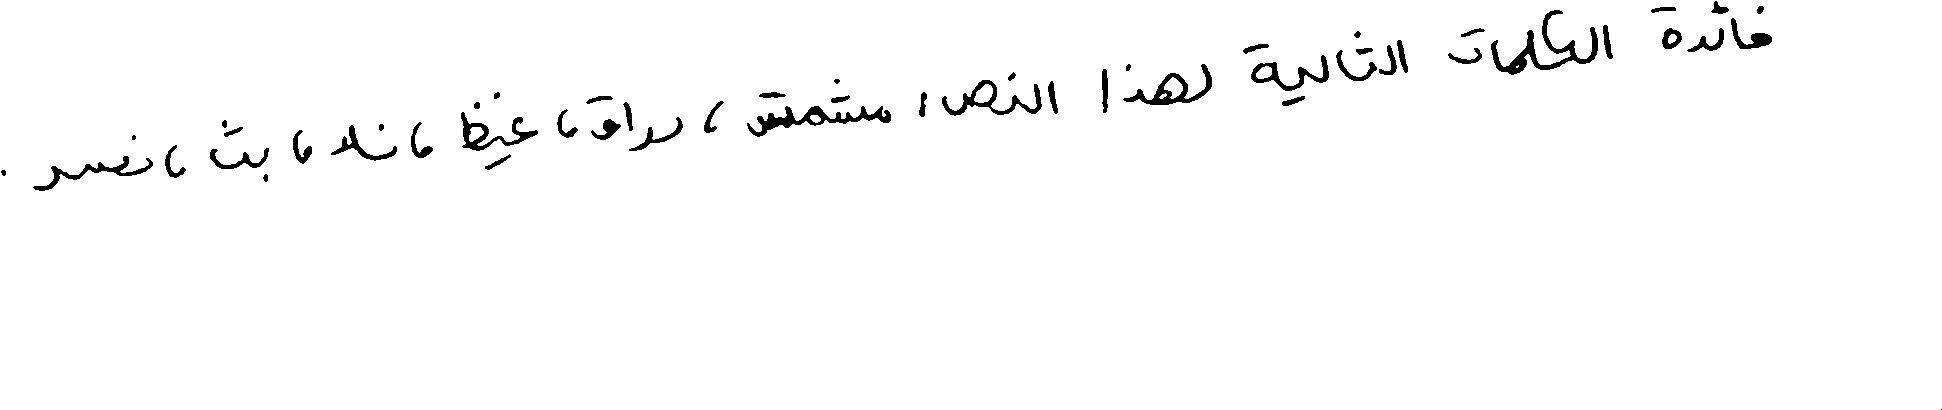 فائدة الكلمات التالية لهذا النص، مشمش، رواق، غيظ، نلا، بث، نفسر.